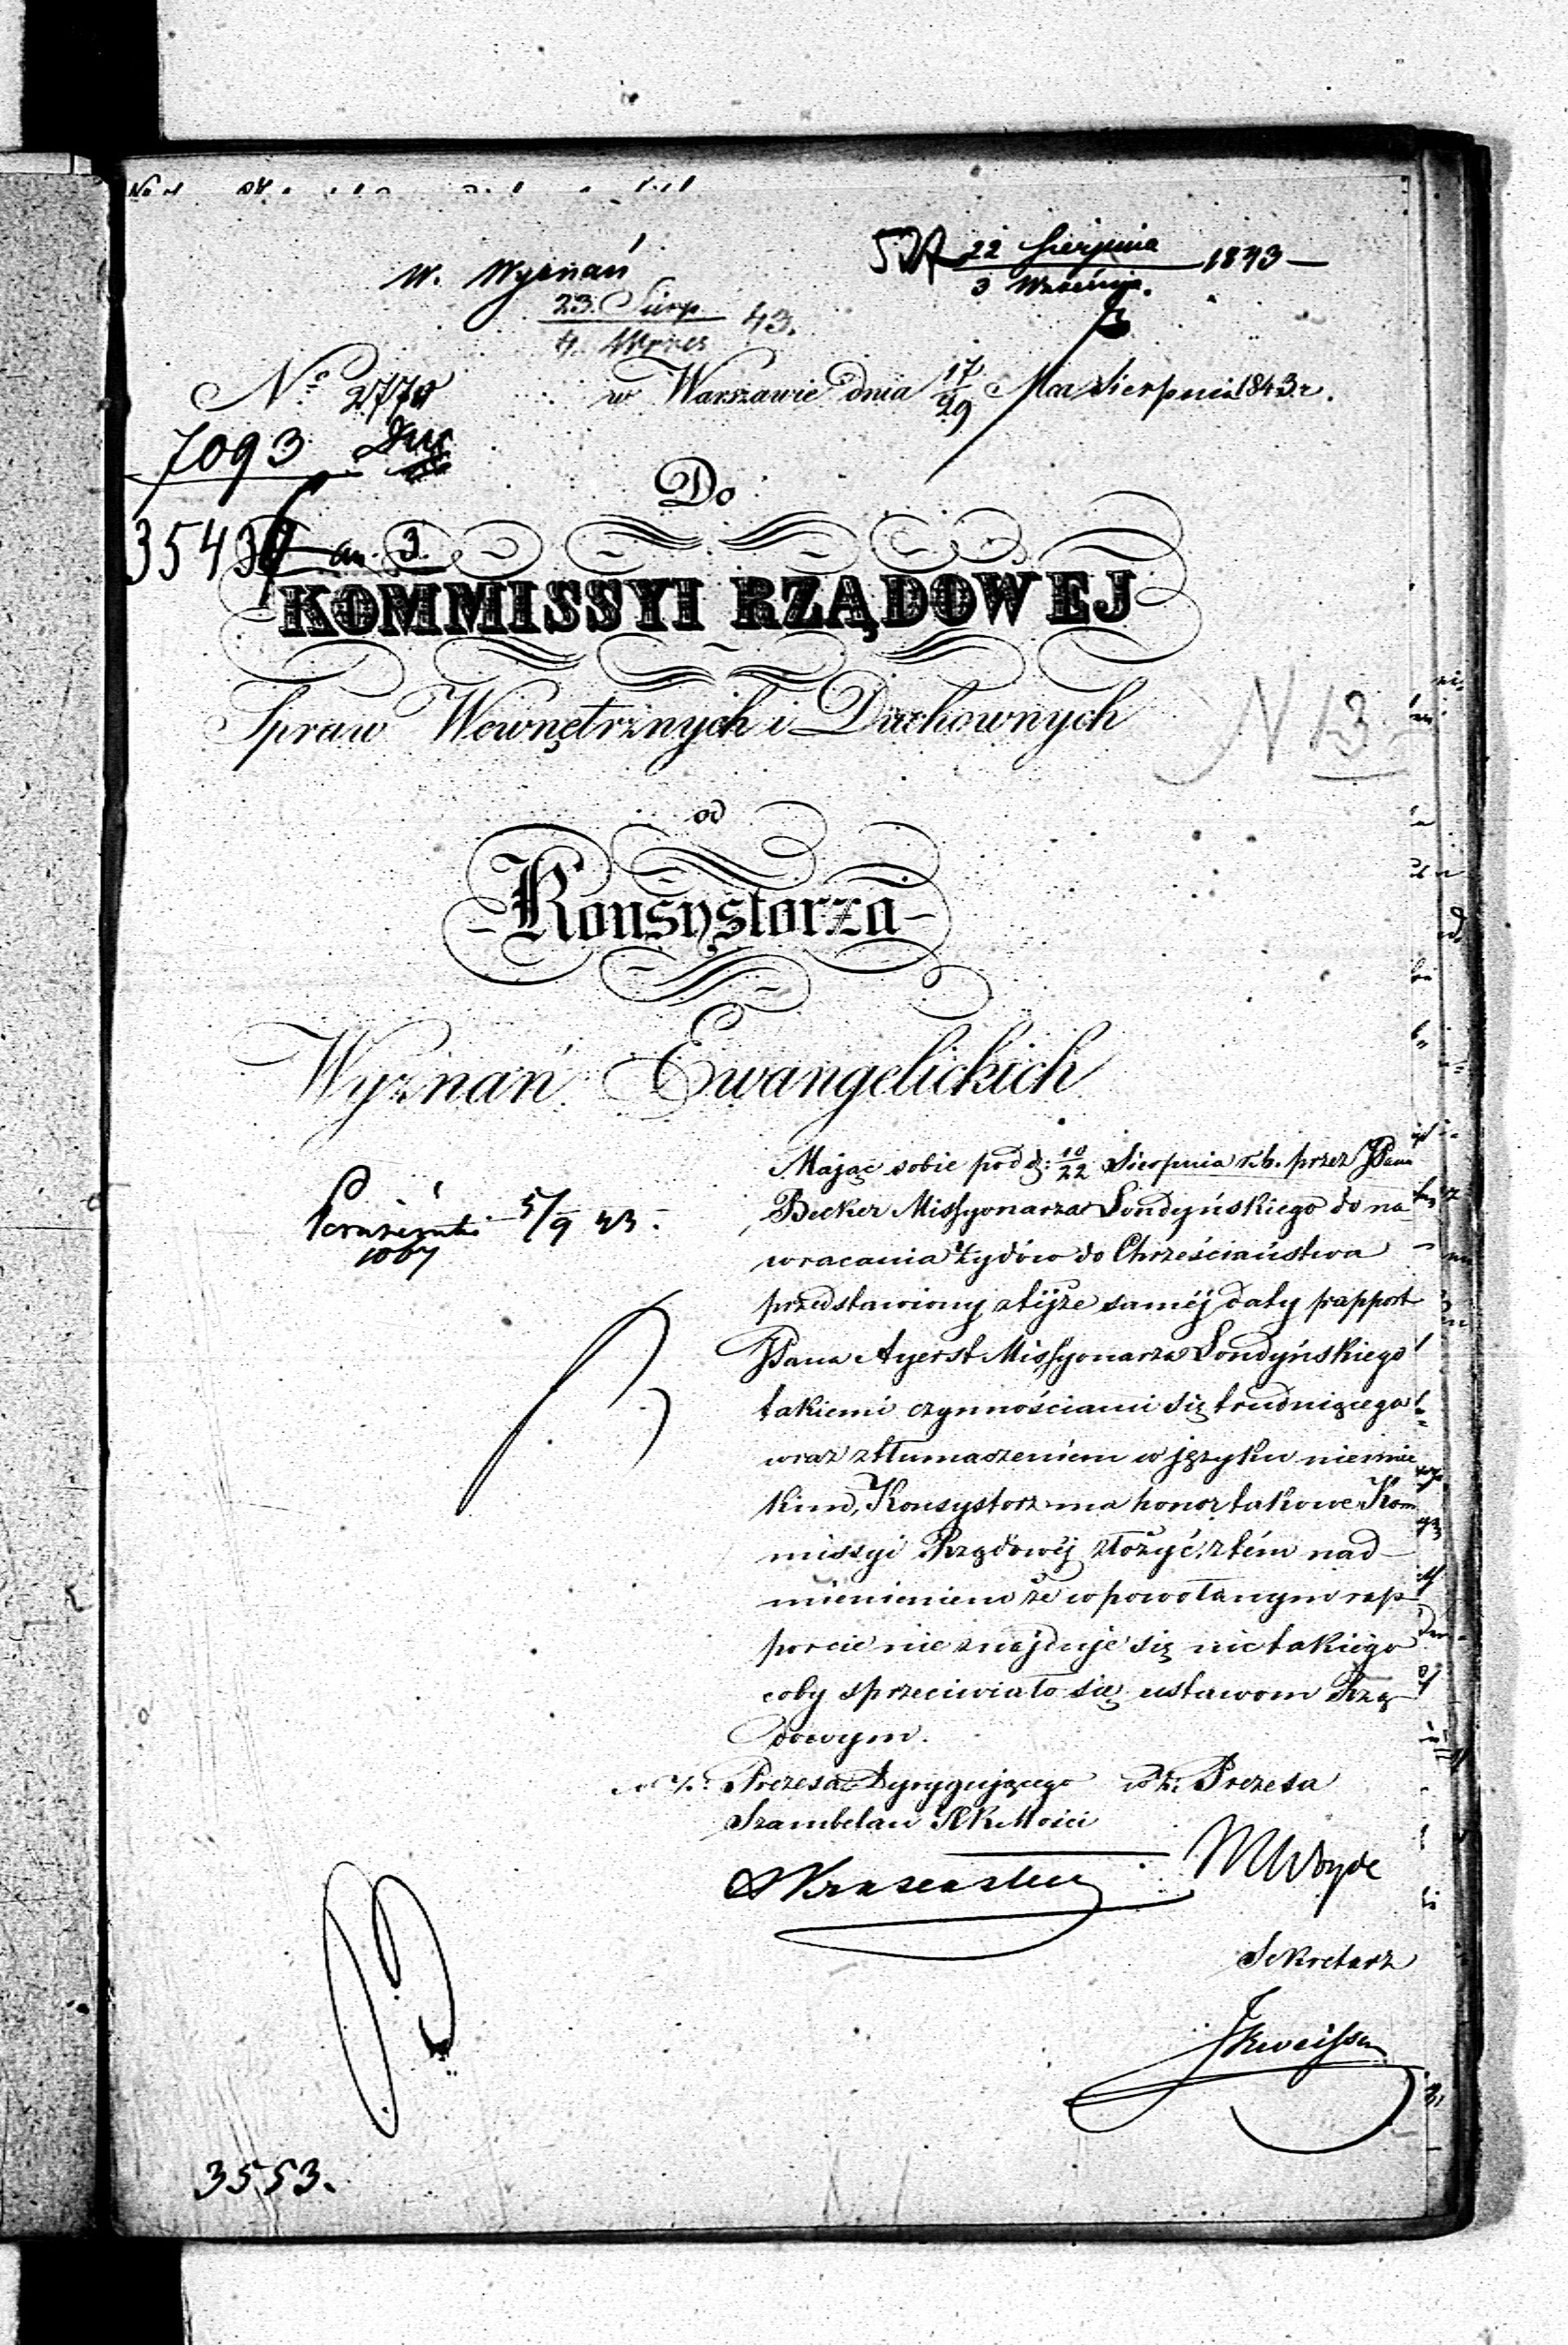 W. Wyznań
22 Sierpnia 1843
3 Września.
23. Sierp. 43.
4. Wrzes
No 2770
w Warszawie dnia 17/29 Mca Sierpnia 1843 r.
7093
3543
an. 3.
Do
KOMMISSYI RZĄDOWEJ
Spraw Wewnętrznych i Duchownych
N 13
od
Konsystorza
Wyznań Ewangelickich
Mając sobie pod d: 10/22 Sierpnia r.b. przez JPana
Becker Missyonarza Londyńskiego do na
wracania Żydów do Chrześciaństwa
5/9 43.
przedstawiony z tijże saméj daty rapport
JPana Ayerst Missyonarza Londyńskiego
takiemi czynnościami się trudniącego
wraz z tłumaszeniem w języku niemiec
kim, Konsystorz ma honor takowe Kom
missyi Rządowéj złożyć, z tém nad
mienieniem że w powołanym rap
porcie nie znajduje się nic takiego
coby sprzeciwiało się ustawom Rzą
dowym.
Prezesa Dyrygującego w z. Prezesa
Szambelan JKMości
Sekretarz
3553.